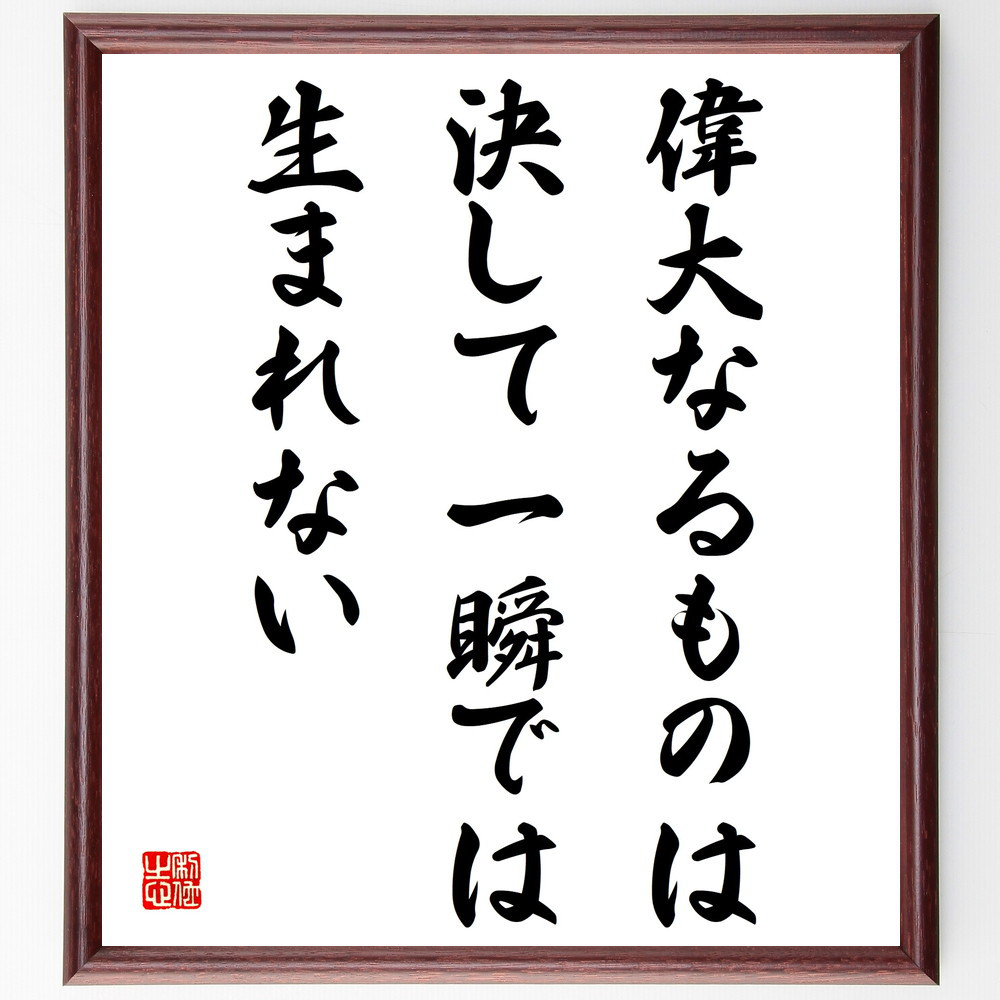 偉大なるものは
決して一瞬では
生まれない